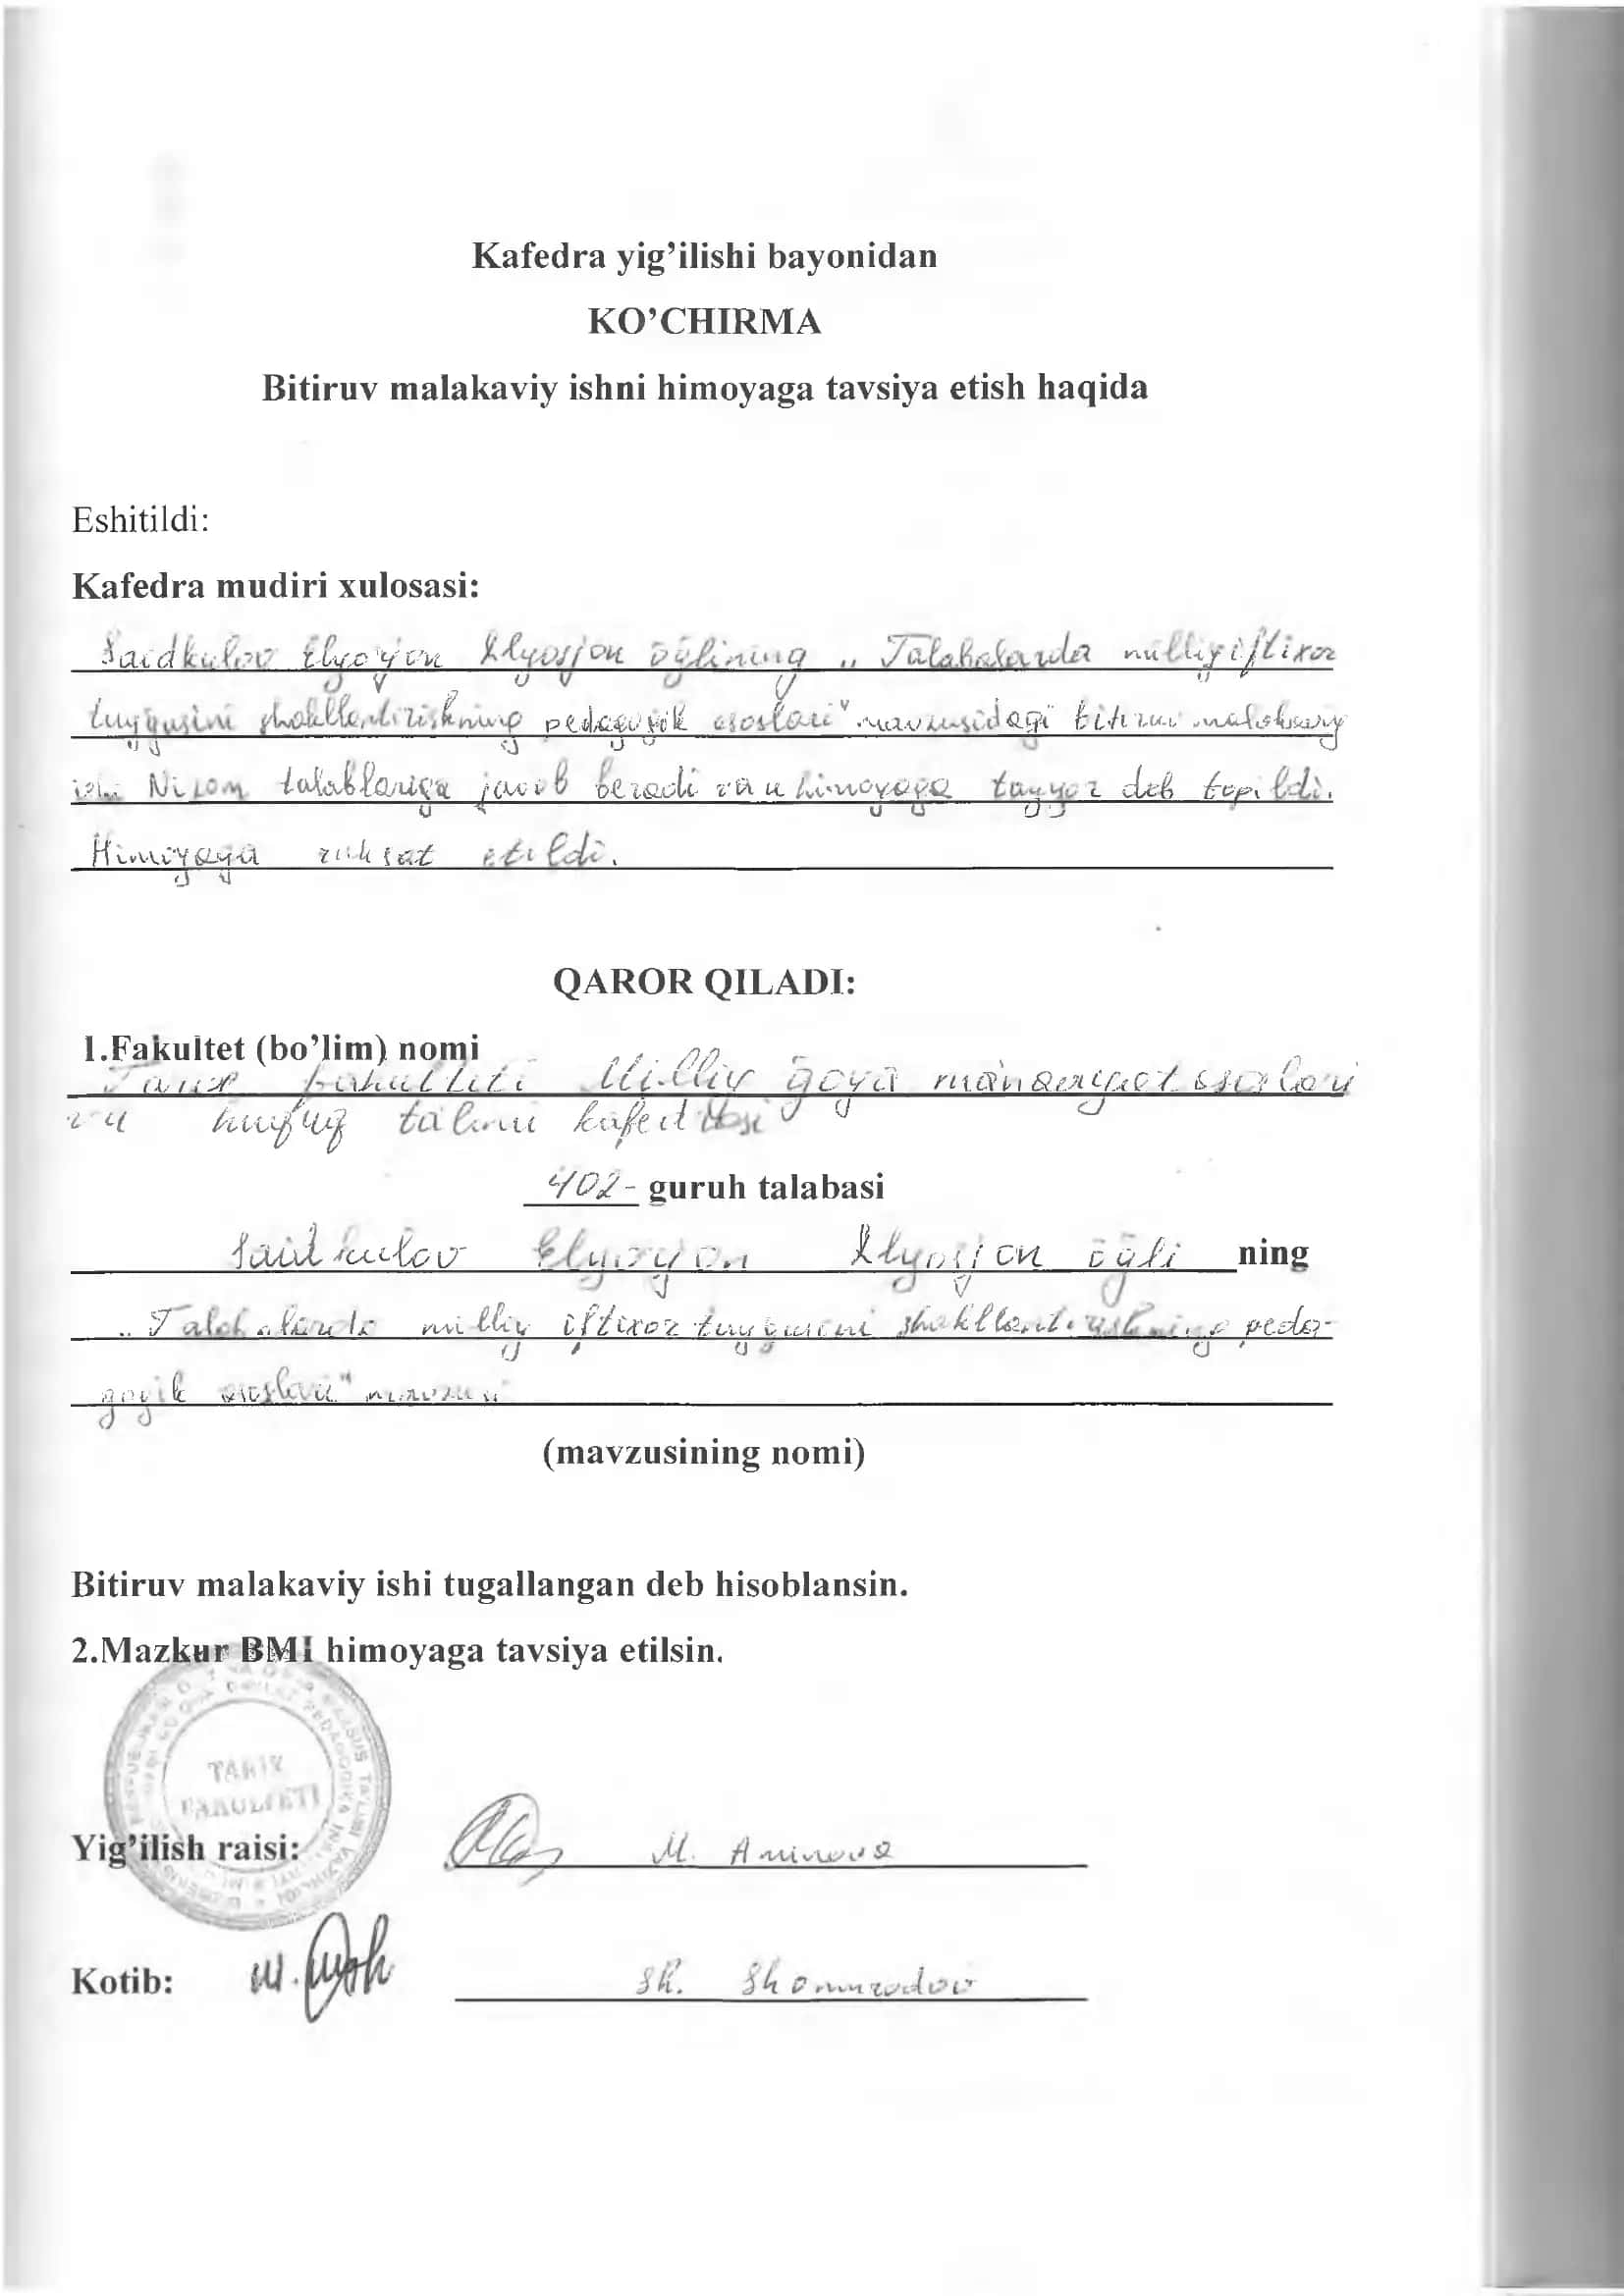 Kafedra yig’ilishi bayonidan
KO’CHIRMA
Bitiruv malakaviy ishni himoyaga tavsiya etish haqida
Eshitildi:
Kafedra mudiri xulosasi:
Saidkulov Elyorjon Ilyosjon õg̃lining „Talabalarda milliy iftixor
tuyg̃usini shakllantirishning pedagogik asoslari" mavzusidagi bitiruv malakaviy
ishi Nizom talablariga javob beradi va u himoyaga tayyor deb topildi.
Himoyaga ruhsat etildi.
QAROR QILADI:
1.Fakultet (bo’lim) nomi
Tarix fakulteti Milliy g̃oya mànaviyat asoslari
va huquq tàlimi kafedrasi
402- guruh talabasi
Saidkulov Elyorjon Ilyosjon õg̃li ning
„Talabalarda milliy iftixor tuyg̃usini shakllantirishning peda-
gogik asoslari" mavzusi
(mavzusining nomi)
Bitiruv malakaviy ishi tugallangan deb hisoblansin.
2.Mazkur BMI himoyaga tavsiya etilsin.
TARIX
FAKULTETI
Yig’ilish raisi: M. Aminova
Kotib: Sh. Shomurodov